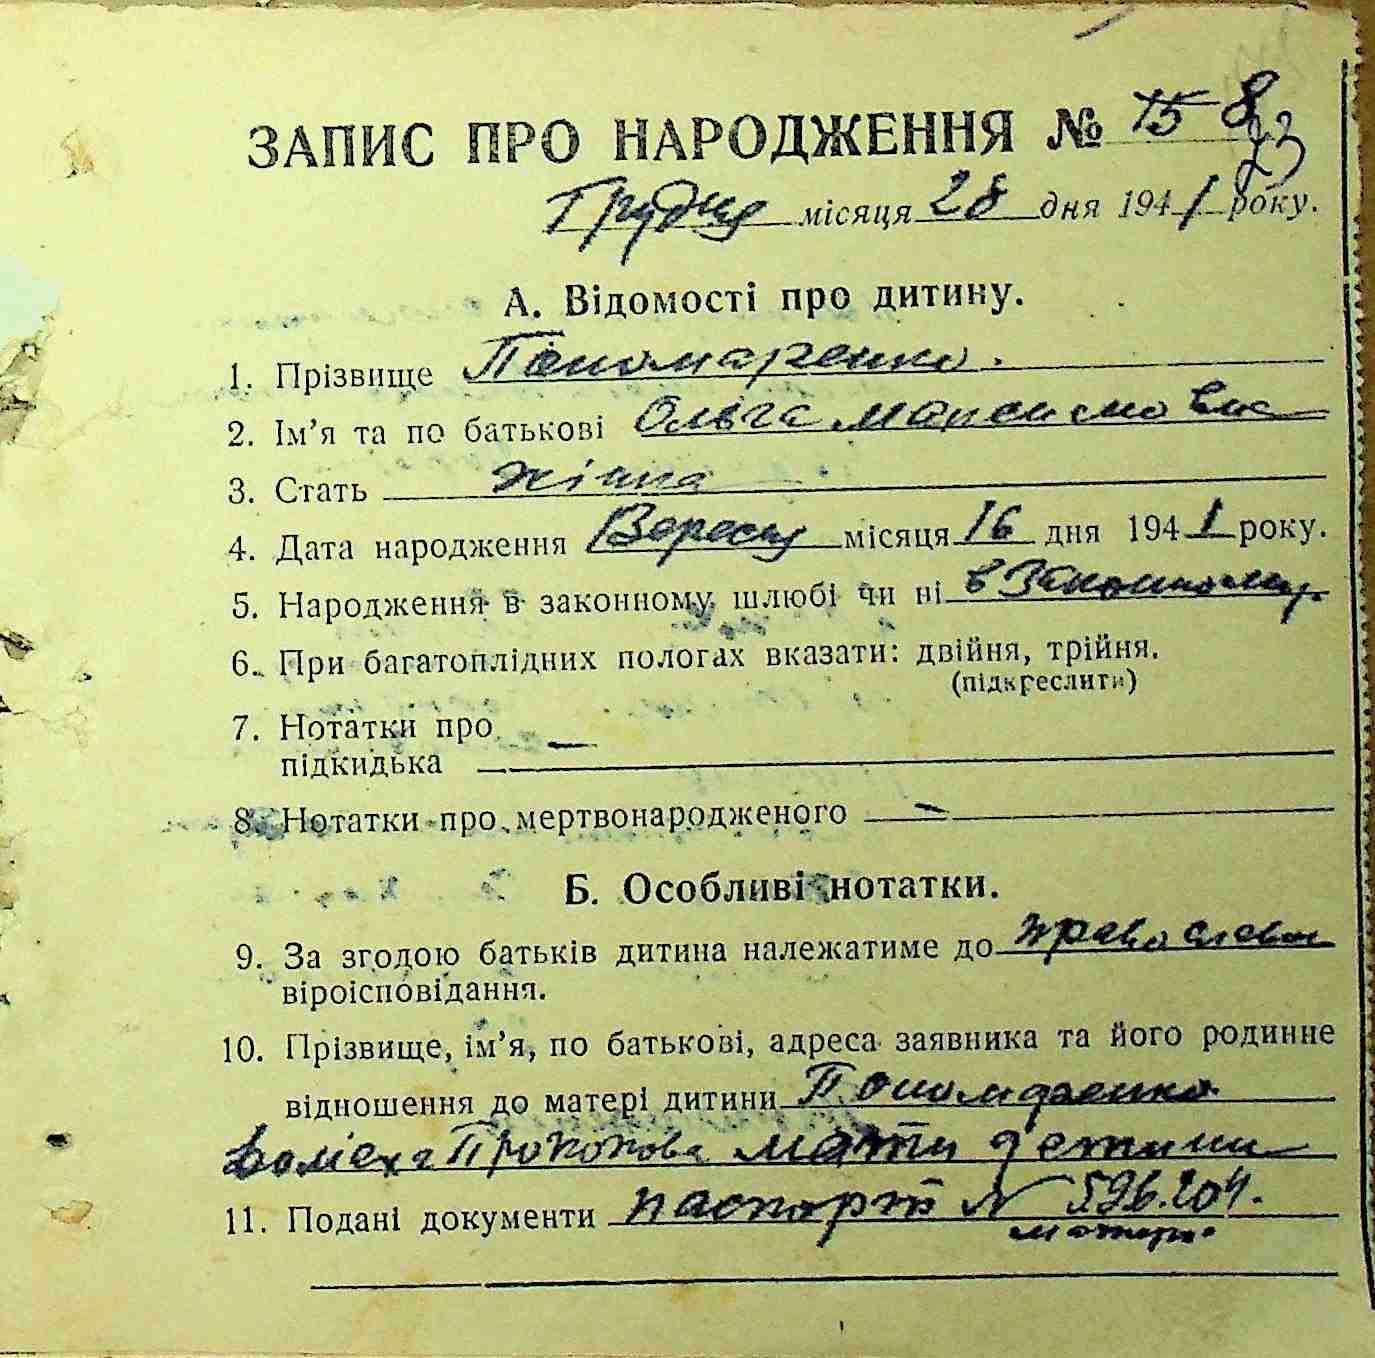 ЗАПИС ПРО НАРОДЖЕННЯ № 15-8
Грудня місяця 28 дня 1941 року.
А. Відомості про дитину.
1. Прізвище Пономаренко.
2. Ім'я та по батькові Ольга Максимовна
3. Стать жіноча
4. Дата народження Вересня місяця 16 дня 1941 року.
5. Народження в законному шлюбі чи ні в законному.
6. При багатоплідних пологах вказати: двійня, трійня.
(підкреслити)
7. Нотатки про
підкидька —
8. Нотатки про мертвонародженого —
Б. Особливі нотатки.
9. За згодою батьків дитина належатиме до
віроісповідання.
10. Прізвище, ім'я, по батькові, адреса заявника та його родинне
відношення до матері дитини Пономаренко
мати
11. Подані документи паспорт № 596.204.
матери.